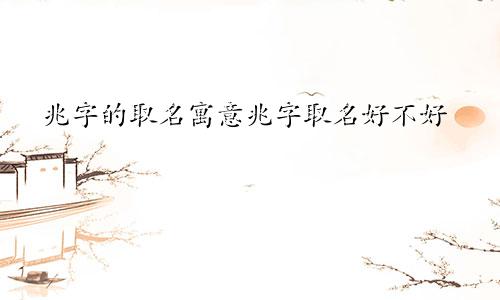 兆字的取名寓意兆字取名好不好